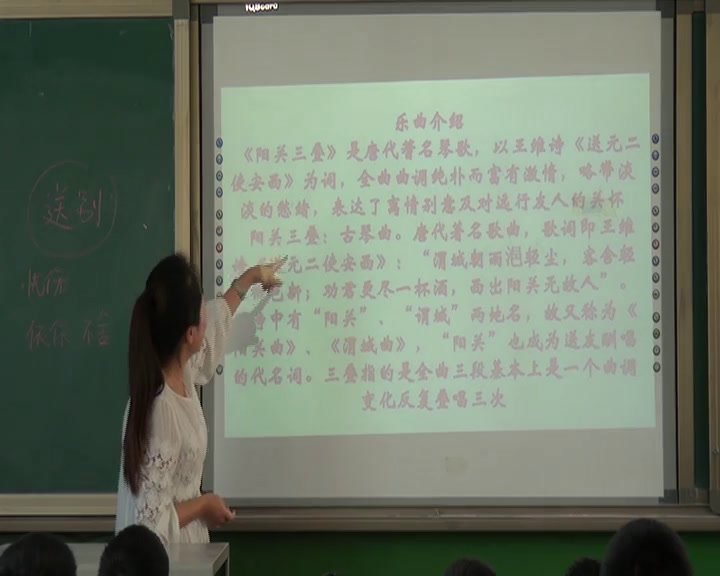 IQBoard
送别
忧伤
依依不舍
乐曲介绍
《阳关三叠》是唐代著名琴歌，以王维诗《送元二
使安西》为词，全曲曲调纯朴而富有激情，略带淡
淡的愁绪，表达了离情别意及对远行友人的关怀
阳关三叠：古琴曲。唐代著名歌曲，歌词即王维
元二使安西》：“渭城朝雨浥轻尘，客舍轻
色新；劝君更尽一杯酒，西出阳关无故人”。
中有“阳关”、“谓城”两地名，故又称为《
阳关曲》、《渭城曲》，“阳关”也成为送友别唱
的代名词。三叠指的是全曲三段基本上是一个曲调
变化反复叠唱三次